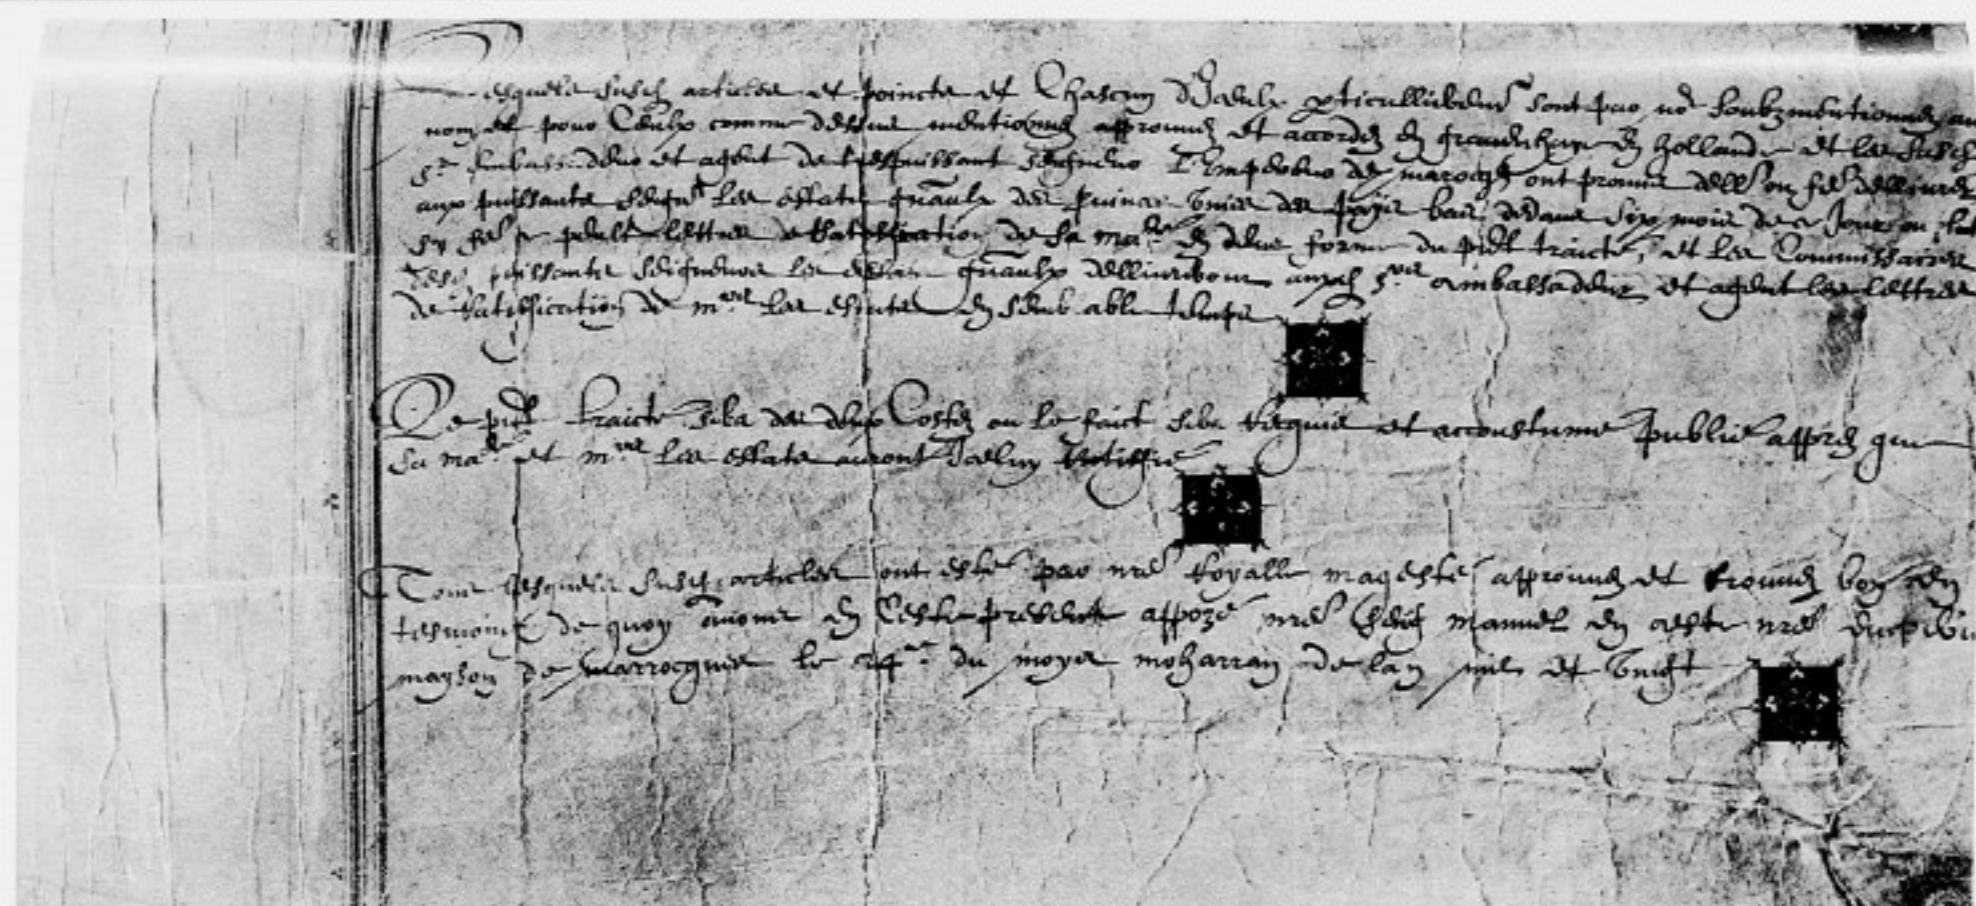 Lesquels susd articles et poincts et Chascun D'Jceulx pticullierem^t sont par no^s soubzmentionnez au
nom et pour Ceulx comme dessus mentionnez approuuez et accordez En grauenhaye En hollande et les susd
s^rs Embassadeur et agent de trespuissant seigneur L'Empereur de marocqs ont promis
aux puissants seign^rs les estats gnãulx des puinces Vnies des pays bas, dedans six mois de ce Jour ou
sy fe^r se peult lettres de Ratiffication de sa ma^té En deue forme du pñt traicté, et les Commissaires
puissants seigneurs les estats gnãulx deliureront auxd s^rs ambassadeur et agent les lettres
de Ratiffication de m^rs les estats En semblable temps

Le pñt traicté sera des deux Costez ou le faict sera Requis et accoustumé publié apprez que
sa ma^té et m^rs les estats auront Jceluy Ratiffié

Tous lesquels susd articles ont esté par nre Royalle magesté approuuez et trouuez bon En
tesmoing de quoy auons En Ceste presente appozé nre seing manuel En ceste nre
mayson de Marrocques le 24^me du moys moharran de lan mil et Vingt